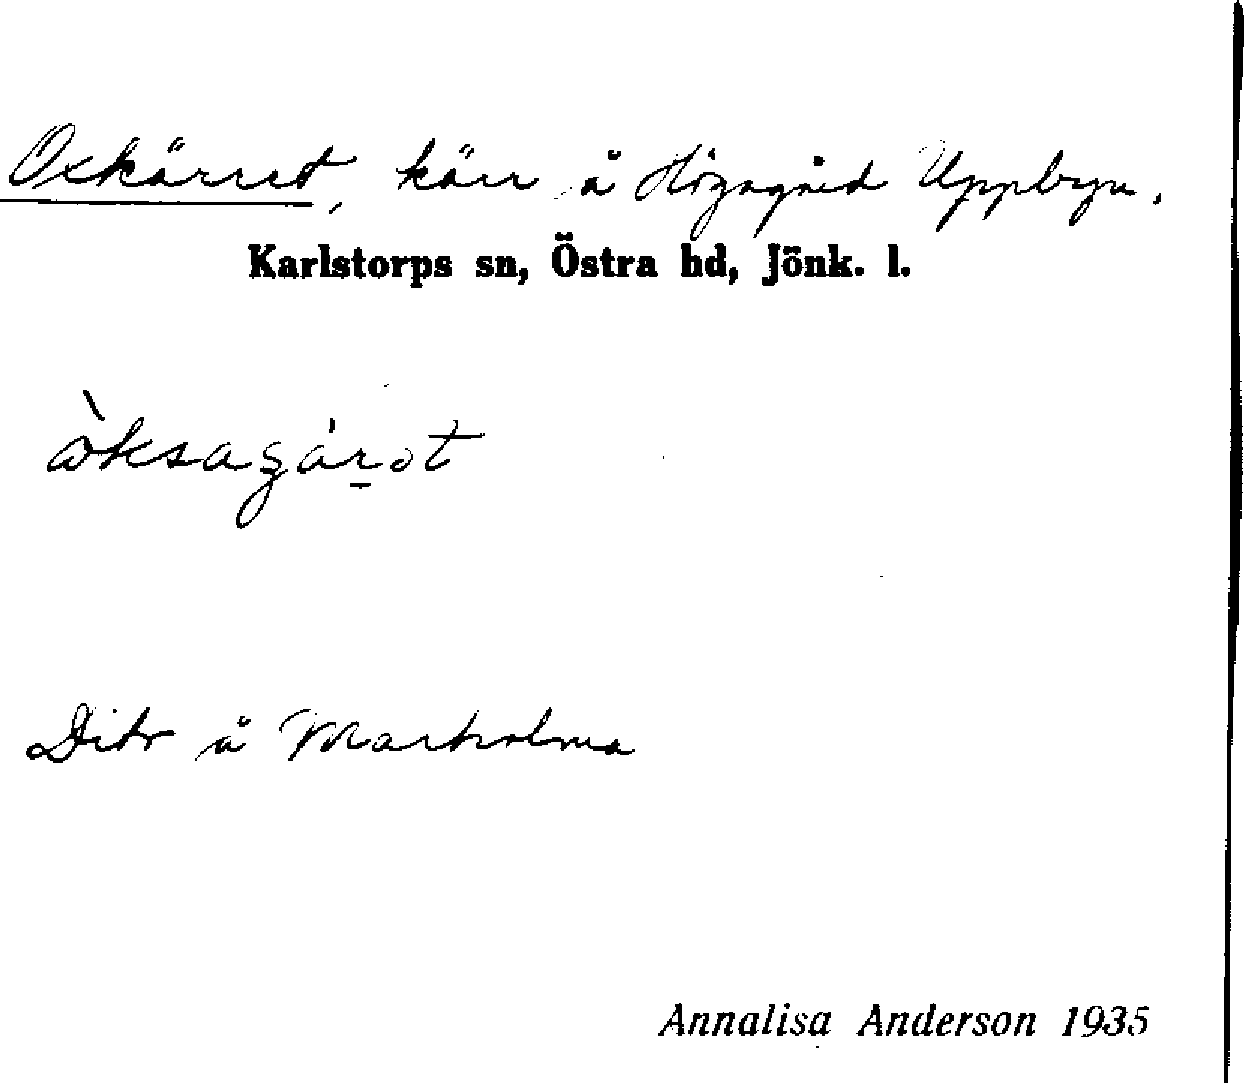 Oxkärret, kärr å Högagärd Uppbyn.
Karlstorps sn, Östra hd, Jönk. l.
Dito å Marholma
Annalisa Anderson 1935